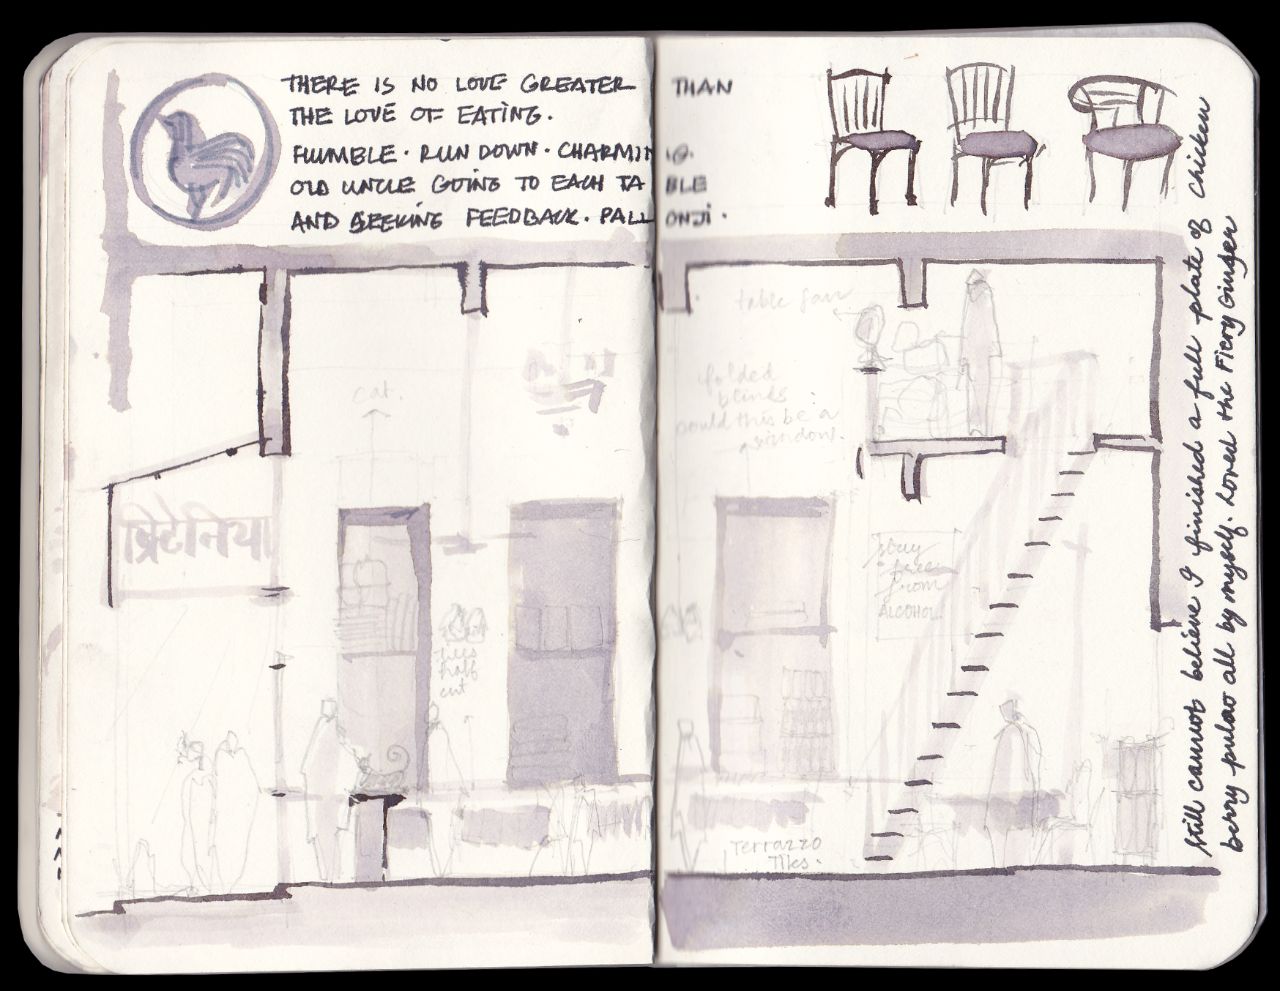 THERE IS NO LOVE GREATER THAN
THE LOVE OF EATING.
HUMBLE. RUN DOWN. CHARMING.
OLD UNCLE GOING TO EACH TABLE
AND SEEKING FEEDBACK. PALLONJI.
table fan
cat.
folded
blinds
could this be a
window.
ब्रिटेनिया
stay
free
from
ALCOHOL.
half
cut
Terrazzo
Tiles.
Still cannot believe I finished a full plate of Chicken
berry pulao all by myself. Loved the Fiery Ginger